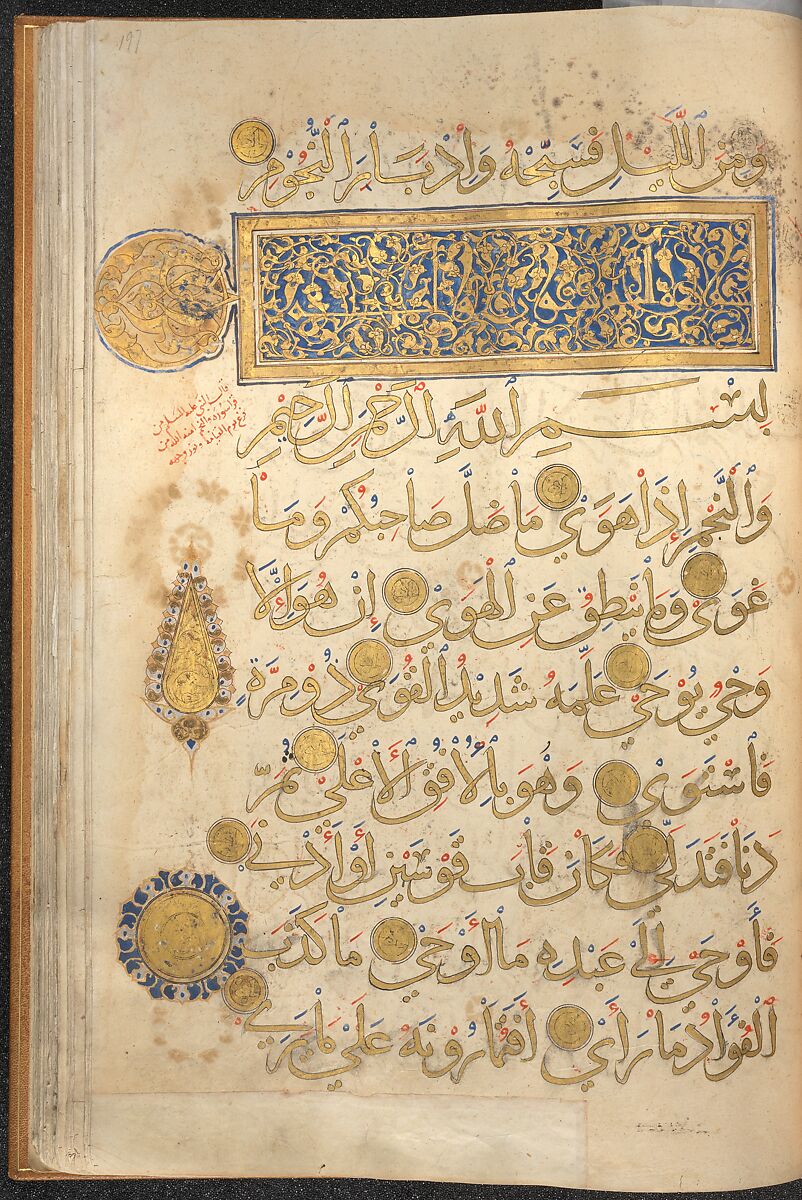 197
وَمِنَ اللَّيْلِ فَسَبِّحْهُ وَإِدْبَارَ النُّجُومِ
بِسْمِ اللَّهِ الرَّحْمَنِ الرَّحِيمِ
وَالنَّجْمِ إِذَا هَوَى مَا ضَلَّ صَاحِبُكُمْ وَمَا
غَوَى وَمَا يَنْطِقُ عَنِ الْهَوَى إِنْ هُوَ إِلَّا
وَحْيٌ يُوحَى عَلَّمَهُ شَدِيدُ الْقُوَى ذُو مِرَّةٍ
فَاسْتَوَى وَهُوَ بِالْأُفُقِ الْأَعْلَى ثُمَّ
دَنَا فَتَدَلَّى فَكَانَ قَابَ قَوْسَيْنِ أَوْ أَدْنَى
فَأَوْحَى إِلَى عَبْدِهِ مَا أَوْحَى مَا كَذَبَ
الْفُؤَادُ مَا رَأَى أَفَتُمَارُونَهُ عَلَى مَا يَرَى